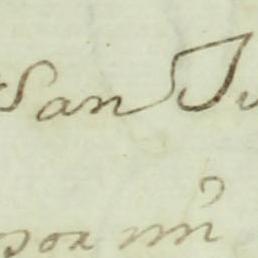 San Ju
por mi